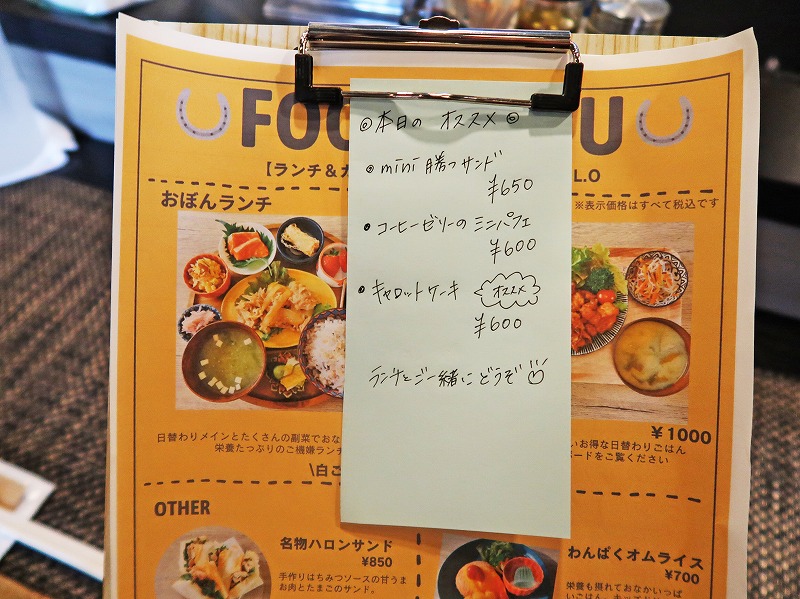 FOO
NU
【ランチ＆カ
L.O
おぼんランチ
※表示価格はすべて税込です
◎本日の オススメ◎
• mini 勝つサンド
¥650
• コーヒーゼリーの ミニパフェ
¥600
• キャロットケーキ オススメ
¥600
ランチとご一緒にどうぞ
¥1000
日替わりメインとたくさんの副菜でおな
栄養たっぷりのご機嫌ランチ
いお得な日替わりごはん
ボードをご覧ください
\白ご
OTHER
名物ハロンサンド
¥850
手作りはちみつソースの甘うま
お肉とたまごのサンド。
わんぱくオムライス
¥700
栄養も摂れておなかいっぱ